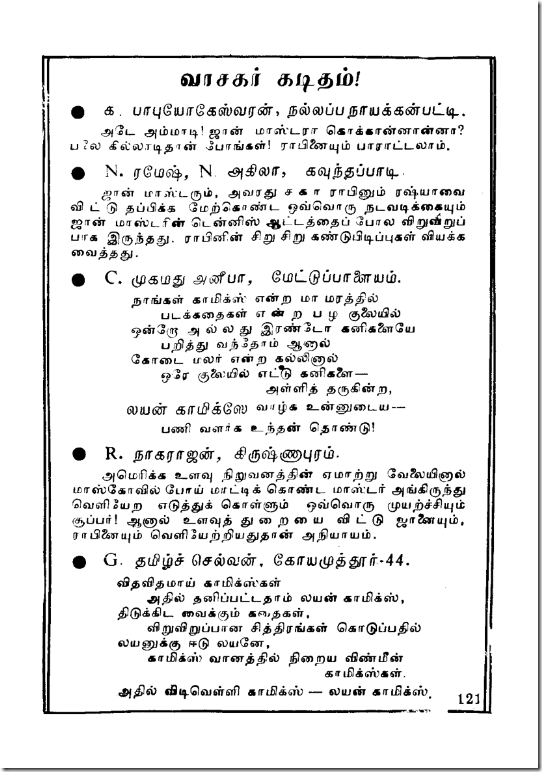 வாசகர் கடிதம்!
● க. பாபுயோகேஸ்வரன், நல்லப்பநாயக்கன்பட்டி.
அடே அம்மாடி! ஜான் மாஸ்டரா கொக்கான்னானா?
பலே கில்லாடிதான் போங்கள்! ராபினையும் பாராட்டலாம்.
● N. ரமேஷ், N. அகிலா, கவுந்தப்பாடி.
ஜான் மாஸ்டரும், அவரது சகா ராபினும் ரஷ்யாவை
விட்டு தப்பிக்க மேற்கொண்ட ஒவ்வொரு நடவடிக்கையும்
ஜான் மாஸ்டரின் டென்னிஸ் ஆட்டத்தைப் போல விறுவிறுப்
பாக இருந்தது. ராபினின் சிறு சிறு கண்டுபிடிப்புகள் வியக்க
வைத்தது.
● C. முகமது அனீபா, மேட்டுப்பாளையம்.
நாங்கள் காமிக்ஸ் என்ற மா மரத்தில்
படக்கதைகள் என்ற பழ குலையில்
ஒன்றோ அல்லது இரண்டோ கனிகளையே
பறித்து வந்தோம் ஆனால்
கோடை மலர் என்ற கல்லினால்
ஒரே குலையில் எட்டு கனிகளை—
அள்ளித் தருகின்ற,
லயன் காமிக்ஸே வாழ்க உன்னுடைய—
பணி வளர்க உந்தன் தொண்டு!
● R. நாகராஜன், கிருஷ்ணாபுரம்.
அமெரிக்க உளவு நிறுவனத்தின் ஏமாற்று வேலையினால்
மாஸ்கோவில் போய் மாட்டிக் கொண்ட மாஸ்டர் அங்கிருந்து
வெளியேற எடுத்துக் கொள்ளும் ஒவ்வொரு முயற்ச்சியும்
சூப்பர்! ஆனால் உளவுத் துறையை விட்டு ஜானையும்,
ராபினையும் வெளியேற்றியதுதான் அநியாயம்.
● G. தமிழ்ச் செல்வன், கோயமுத்தூர்-44.
விதவிதமாய் காமிக்ஸ்கள்
அதில் தனிப்பட்டதாம் லயன் காமிக்ஸ்,
திடுக்கிட வைக்கும் கதைகள்,
விறுவிறுப்பான சித்திரங்கள் கொடுப்பதில்
லயனுக்கு ஈடு லயனே,
காமிக்ஸ் வானத்தில் நிறைய விண்மீன்
காமிக்ஸ்கள்.
அதில் விடிவெள்ளி காமிக்ஸ் — லயன் காமிக்ஸ்.
121